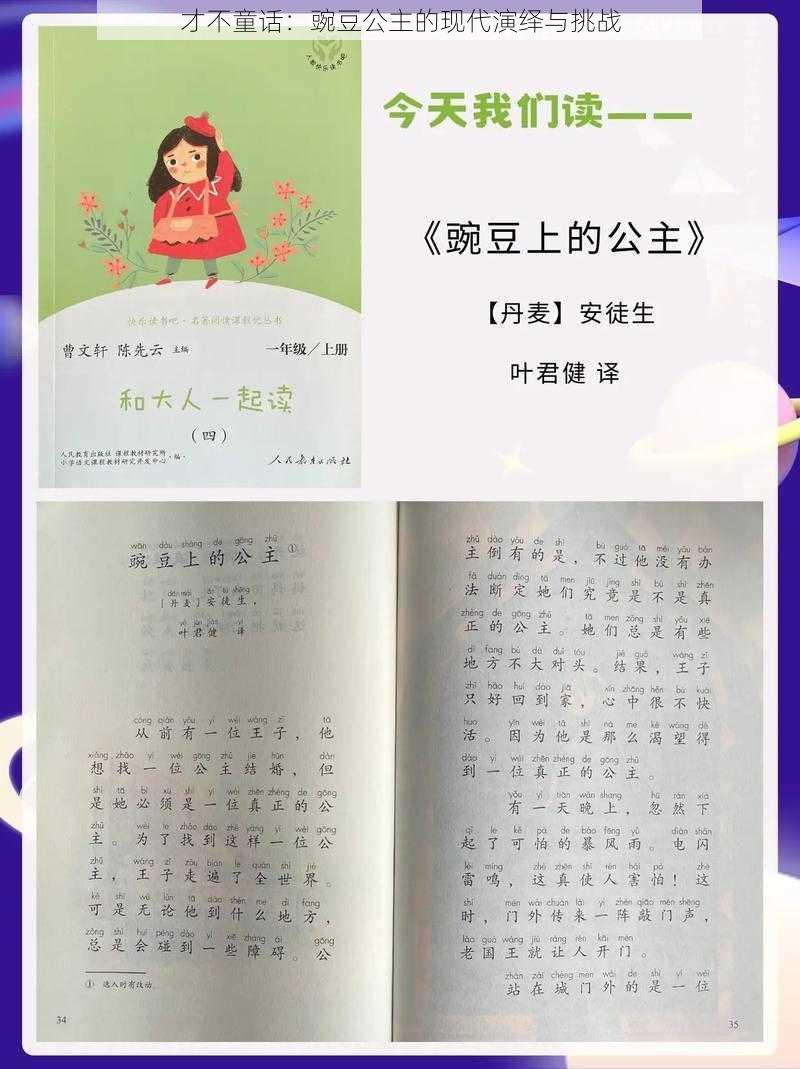 才不童话：豌豆公主的现代演绎与挑战
今天我们读——
《豌豆上的公主》
【丹麦】安徒生
叶君健 译
人教快乐读书吧
快乐读书吧·名著阅读课程化丛书
曹文轩 陈先云 主编
一年级／上册
和大人一起读
（四）
人民教育出版社 课程教材研究所
小学语文课程教材研究开发中心 ·编·
人民教育出版社
wān dòu shàng de gōng zhǔ
豌豆上的公主①
dān mài ān tú shēng
［丹麦］安徒生，
yè jūn jiàn yì
叶君健 译
cóng qián yǒu yí wèi wáng zǐ tā
从前有一位王子，他
xiǎng zhǎo yí wèi gōng zhǔ jié hūn dàn
想找一位公主结婚，但
shì tā bì xū shì yí wèi zhēn zhèng de gōng
是她必须是一位真正的公
zhǔ wèi le zhǎo dào zhè yàng yí wèi gōng
主。为了找到这样一位公
zhǔ wáng zǐ zǒu biàn le quán shì jiè
主，王子走遍了全世界。
kě shì wú lùn tā dào shén me dì fāng
可是无论他到什么地方，
zǒng shì huì pèng dào yì xiē zhàng ài gōng
总是会碰到一些障碍。公
① 选入时有改动。
34
zhǔ dào yǒu de shì bú guò tā méi yǒu bàn
主倒有的是，不过他没有办
fǎ duàn dìng tā men jiū jìng shì bú shì zhēn
法断定她们究竟是不是真
zhèng de gōng zhǔ tā men zǒng shì yǒu xiē
正的公主。她们总是有些
dì fang bú dà duì tóu jié guǒ wáng zǐ
地方不大对头。结果，王子
zhǐ hǎo huí dào jiā xīn zhōng hěn bú kuài
只好回到家，心中很不快
huo yīn wèi tā shì nà me kě wàng dé
活。因为他是那么渴望得
dào yí wèi zhēn zhèng de gōng zhǔ
到一位真正的公主。
yǒu yì tiān wǎn shang hū rán xià
有一天晚上，忽然下
qǐ le kě pà de bào fēng yǔ diàn shǎn
起了可怕的暴风雨。电闪
léi míng zhè zhēn shǐ rén hài pà zhè
雷鸣，这真使人害怕！这
shí mén wài chuán lái yí zhèn qiāo mén shēng
时，门外传来一阵敲门声，
lǎo guó wáng jiù ràng rén kāi mén
老国王就让人开门。
zhàn zài chéng mén wài de shì yí wèi
站在城门外的是一位
35